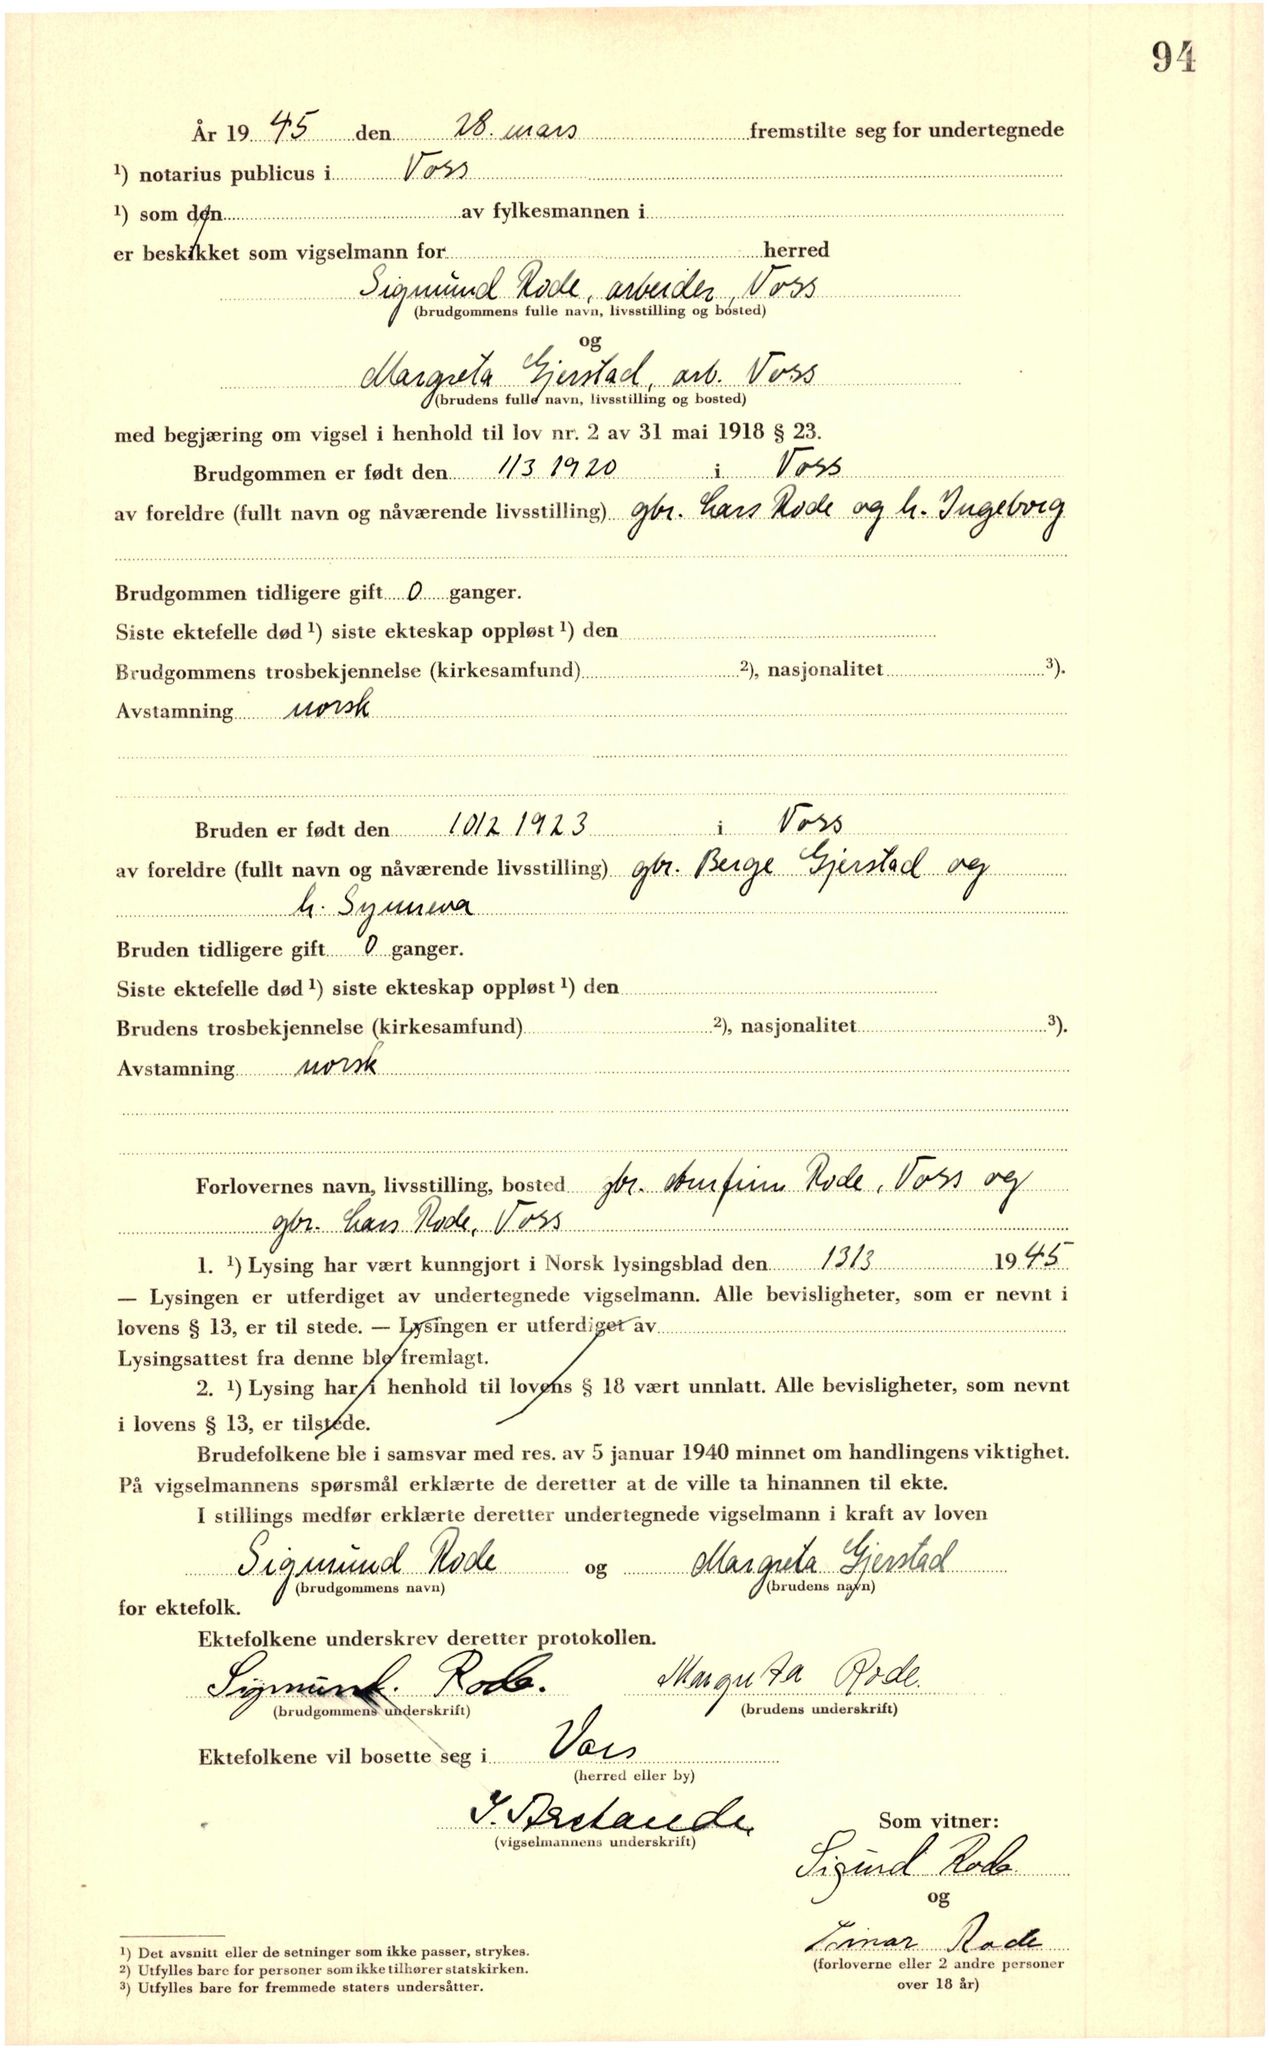 94
År 19 45 den 28. mars fremstilte seg for undertegnede
¹) notarius publicus i Voss
¹) som den av fylkesmannen i
er beskikket som vigselmann for herred
Sigmund Rode, arbeider, Voss
(brudgommens fulle navn, livsstilling og bosted)
og
Margreta Gjerstad, arb. Voss
(brudens fulle navn, livsstilling og bosted)
med begjæring om vigsel i henhold til lov nr. 2 av 31 mai 1918 § 23.
Brudgommen er født den 1/3 1920 i Voss
av foreldre (fullt navn og nåværende livsstilling) gbr. Lars Rode og h. Ingeborg
Brudgommen tidligere gift 0 ganger.
Siste ektefelle død ¹) siste ekteskap oppløst ¹) den
Brudgommens trosbekjennelse (kirkesamfund) ²), nasjonalitet ³).
Avstamning norsk
Bruden er født den 10/2 1923 i Voss
av foreldre (fullt navn og nåværende livsstilling) gbr. Berge Gjerstad og
h. Synneva
Bruden tidligere gift 0 ganger.
Siste ektefelle død ¹) siste ekteskap oppløst ¹) den
Brudens trosbekjennelse (kirkesamfund) ²), nasjonalitet ³).
Avstamning norsk
Forlovernes navn, livsstilling, bosted gbr. Arnfinn Rode, Voss og
gbr. Lars Rode, Voss
1. ¹) Lysing har vært kunngjort i Norsk lysingsblad den 13/3 19 45
— Lysingen er utferdiget av undertegnede vigselmann. Alle bevisligheter, som er nevnt i
lovens § 13, er til stede. — Lysingen er utferdiget av
Lysingsattest fra denne ble fremlagt.
2. ¹) Lysing har i henhold til lovens § 18 vært unnlatt. Alle bevisligheter, som nevnt
i lovens § 13, er tilstede.
Brudefolkene ble i samsvar med res. av 5 januar 1940 minnet om handlingens viktighet.
På vigselmannens spørsmål erklærte de deretter at de ville ta hinannen til ekte.
I stillings medfør erklærte deretter undertegnede vigselmann i kraft av loven
Sigmund Rode og Margreta Gjerstad
(brudgommens navn) (brudens navn)
for ektefolk.
Ektefolkene underskrev deretter protokollen.
Sigmund. Rode. Margreta Rode.
(brudgommens underskrift) (brudens underskrift)
Ektefolkene vil bosette seg i Voss
(herred eller by)
(vigselmannens underskrift)
Som vitner:
Sigurd Rode
og
Einar Rode
(forloverne eller 2 andre personer
over 18 år)
¹) Det avsnitt eller de setninger som ikke passer, strykes.
²) Utfylles bare for personer som ikke tilhører statskirken.
³) Utfylles bare for fremmede staters undersåtter.